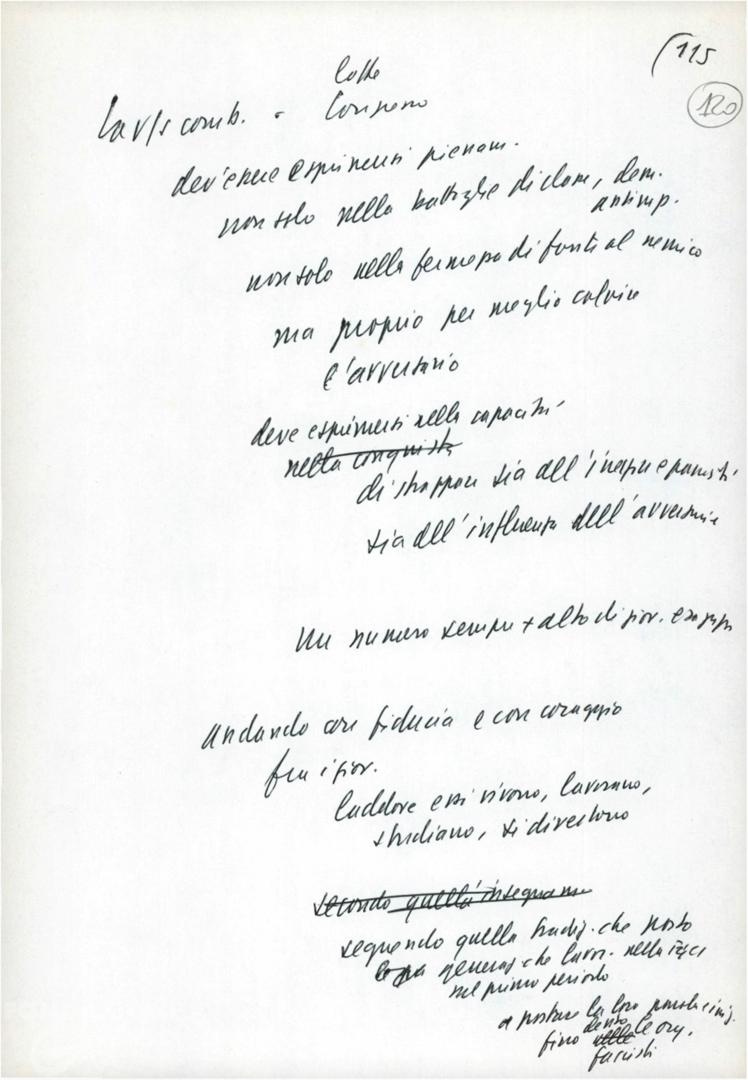 (115
120
Lotte
La v/s comb. - Congresso
dev'essere esprimersi pienam.
non solo nella battaglie di classe, dem.
antimp.
non solo nella fermezza di fronte al nemico
ma proprio per meglio colpire
l'avversario
deve esprimersi nella capacità
nella conquista
di strappare sia all'inerzia
sia all'influenza dell'avversario
un numero sempre + alto di giov. e ragazze
andando con fiducia e con coraggio
fra i giov.
laddove essi vivono, lavorano,
studiano, si divertono
secondo quella insegnam
seguendo quella tradiz. che portò
la generaz. che lavorò nella FGCI
nel primo periodo
a portare la loro parola
fino dentro nelle le org.
fasciste